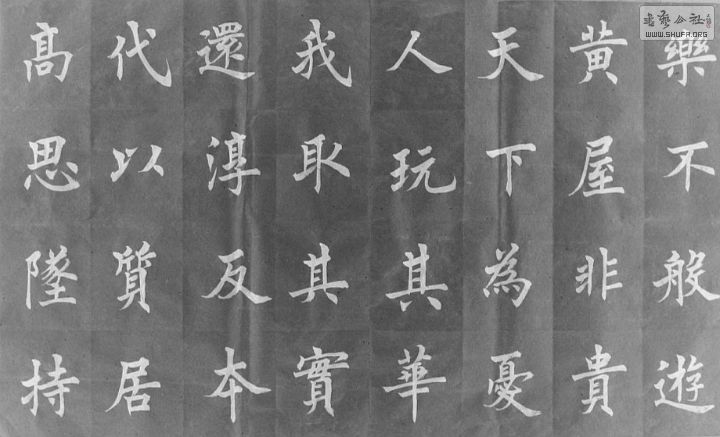 樂不般遊
黃屋非貴
天下為憂
人玩其華
我取其實
還淳反本
代以質居
高思墜持
書藝公社
WWW.SHUFA.ORG